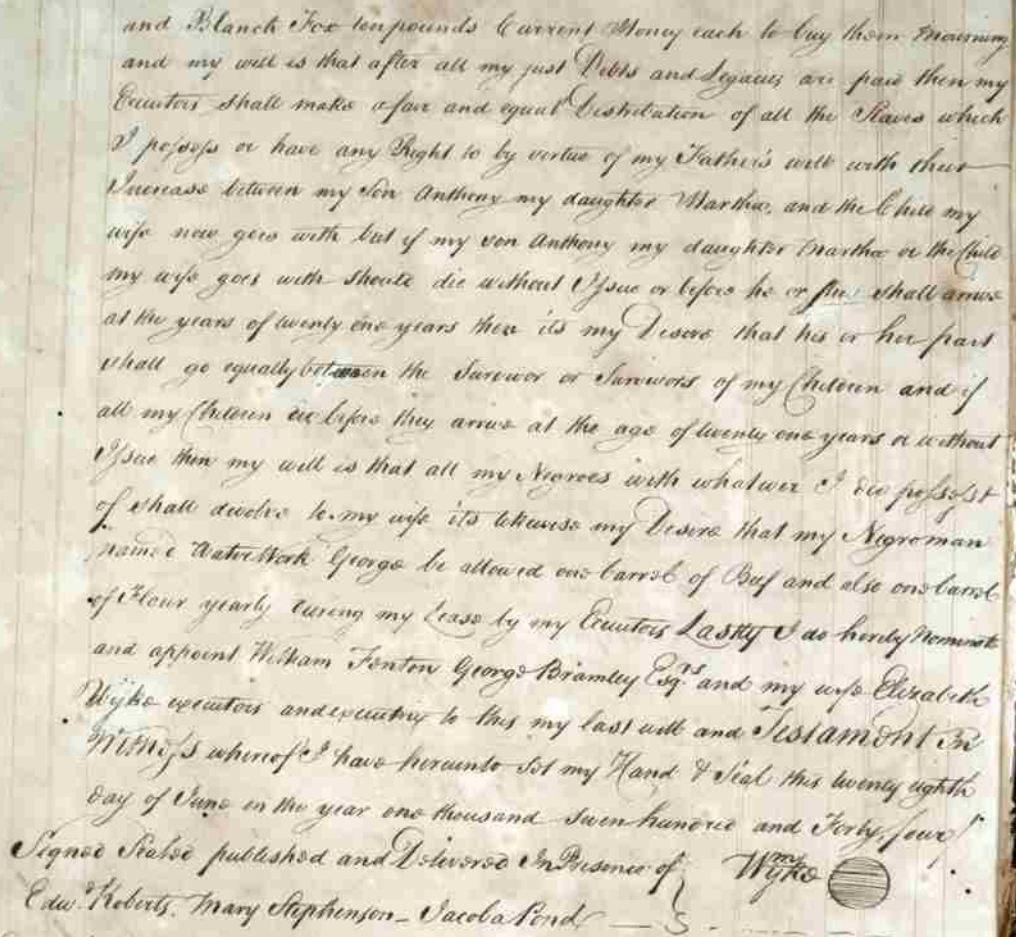 and Blanch Fox ten pounds Current Money each to buy them mourning
and my will is that after all my just Debts and Legacies are paid then my
Executors shall make a fair and equal Distribution of all the Slaves which
I possess or have any Right to by vertue of my Father's will with their
Increase between my Son Anthony my daughter Martha, and the Child my
wife now goes with but if my son Anthony my daughter Martha or the Child
my wife goes with should die without Issue or before he or she shall arrive
at the years of twenty one years then its my Desire that his or her part
shall go equally between the Survivor or Survivors of my Children and if
all my Children die before they arrive at the age of twenty one years or without
Issue then my will is that all my Negroes with whatever I die possesst
of shall devolve to my wife its likewise my Desire that my Negroman
named Waterwork George be allowed one barrel of Beef and also one barrel
of Flour yearly during my Lease by my Executors Lastly I do hereby Nominate
and appoint William Fenton George Bramley Esqrs and my wife Elizabeth
Wyke executors and executrix to this my last will and Testament In
Witness whereof I have hereunto Set my Hand & Seal this twenty eighth
day of June in the year one thousand Seven hundred and Forty four
Signed Sealed published and Delivered In Presence of } Wm Wyke
Edw. Roberts. Mary Stephenson - Jacoba Pond